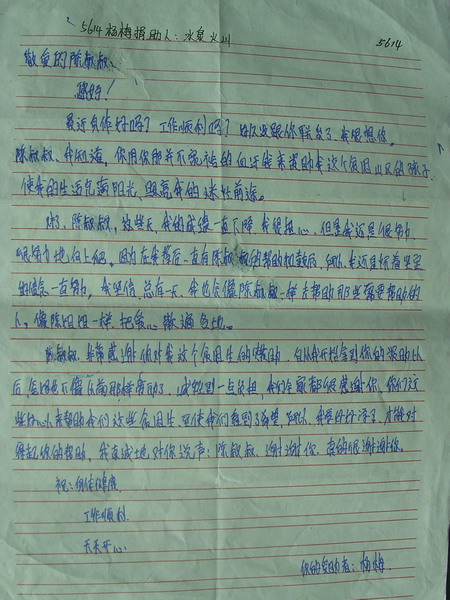 5614 杨梅捐助人：冰泉火川
5614
敬爱的陈叔叔：
您好！
最近身体好吗？工作顺利吗？好久没跟你联系了，我很想你。
陈叔叔，我知道，你用你那并不宽裕的血汗钱来救助我这个贫困山区的孩子，
使我的生活充满阳光，照亮我的迷茫前途。
陈叔叔，这些天，我的成绩一直下降，我很担心，但是我还是很努力，
很努力地向上爬。因为在我背后一直有陈叔叔的帮助和鼓励，所以，我还是怀着坚定
的信念一直努力，我坚信，总有一天，我也会像陈叔叔一样去帮助那些需要帮助的
人，像陈叔叔一样，把爱心撒遍各地。
陈叔叔，非常感谢你对我这个贫困生的帮助，自从我开始拿到你的资助以
后，家里也不像以前那样，一点负担，我们全家都很感谢你，你们这
些好心人来帮助我们这些贫困生，又使我们看到了希望，所以，我要好好学习，才能对
得起你的帮助，我真诚地对你说声：陈叔叔，谢谢你，真的很谢谢你。
祝：身体健康
工作顺利
天天开心
你的受助者：杨梅